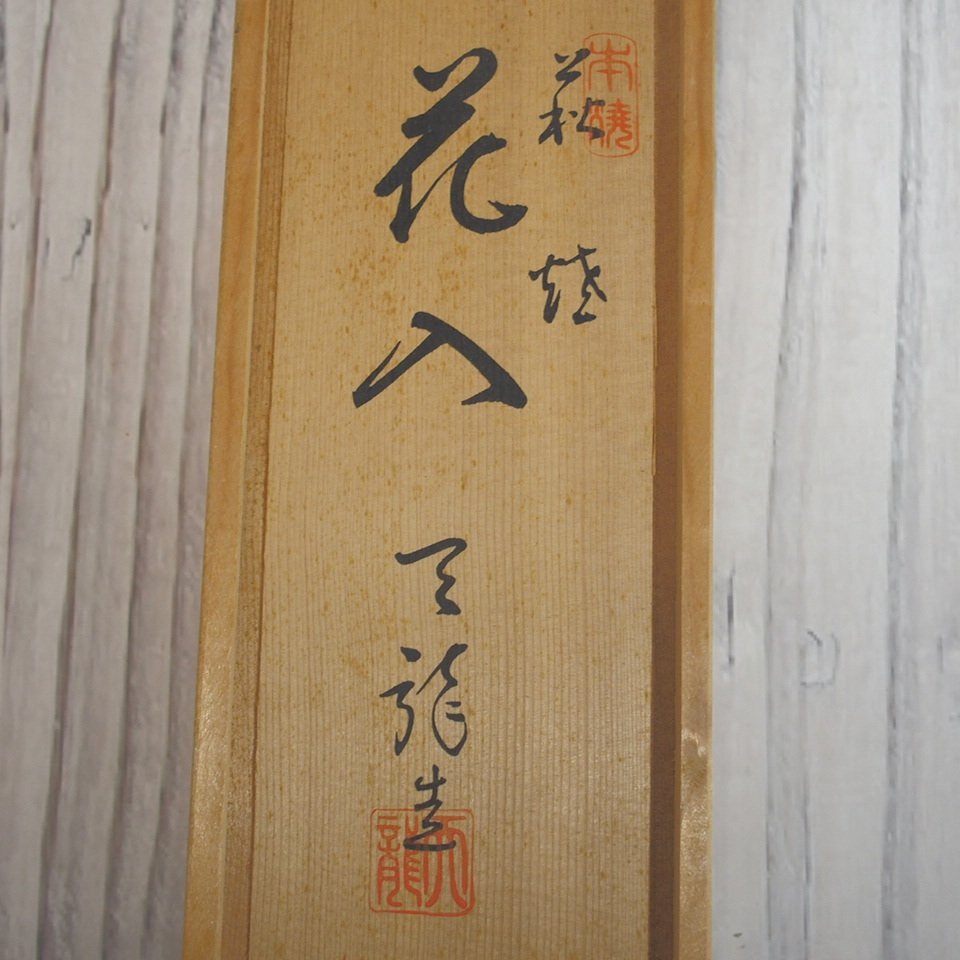 本燒
萩焼
花入
天龍造
天龍